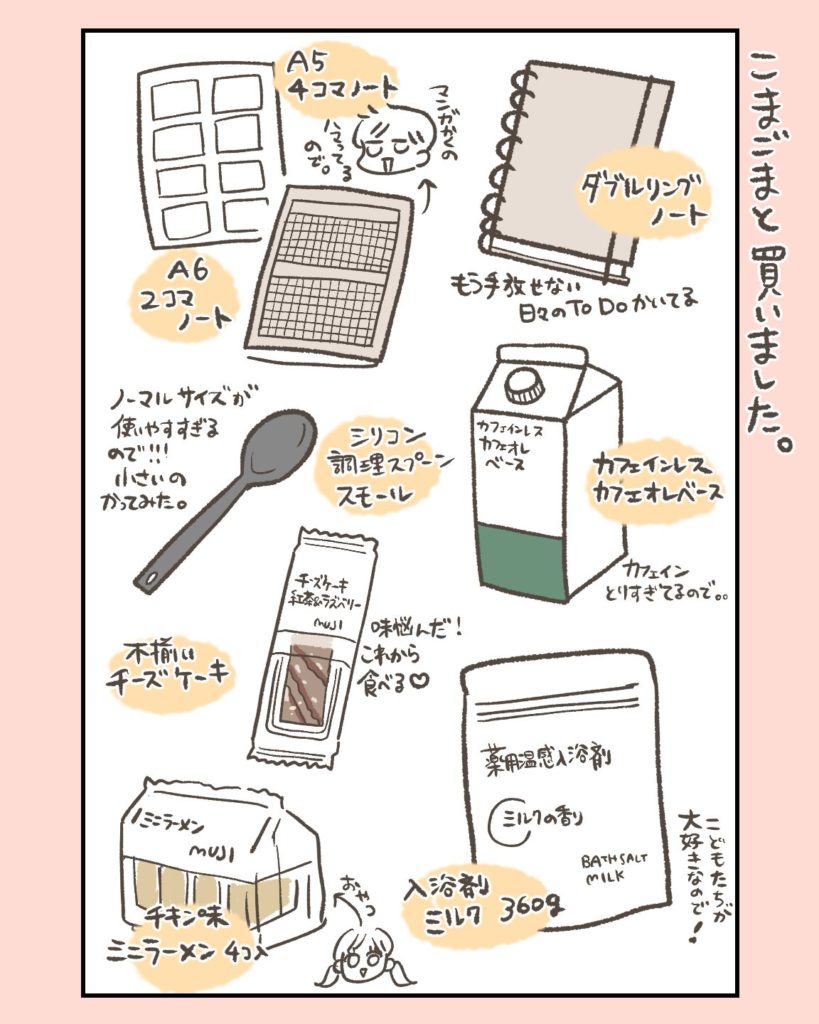 こまごまと買いました。
A5
4コマノート
マンガがくの
ハマってる
ので。
A6
2コマ
ノート
ダブルリング
ノート
もう手放せない
日々のTo Doかいてる
ノーマルサイズが
使いやすすぎる
ので!!!
小さいの
かってみた。
シリコン
調理スプーン
スモール
カフェインレス
カフェオレ
ベース
カフェインレス
カフェオレベース
カフェイン
とりすぎてるので。。
チーズケーキ
紅茶&ラズベリー
MUJI
不揃い
チーズケーキ
味悩んだ!
これから
食べる♡
薬用温感入浴剤
ミルクの香り
BATH SALT
MILK
入浴剤
ミルク 360g
こどもたちが
大好きなので!
ミニラーメン
MUJI
チキン味
ミニラーメン 4コ入
おやつ